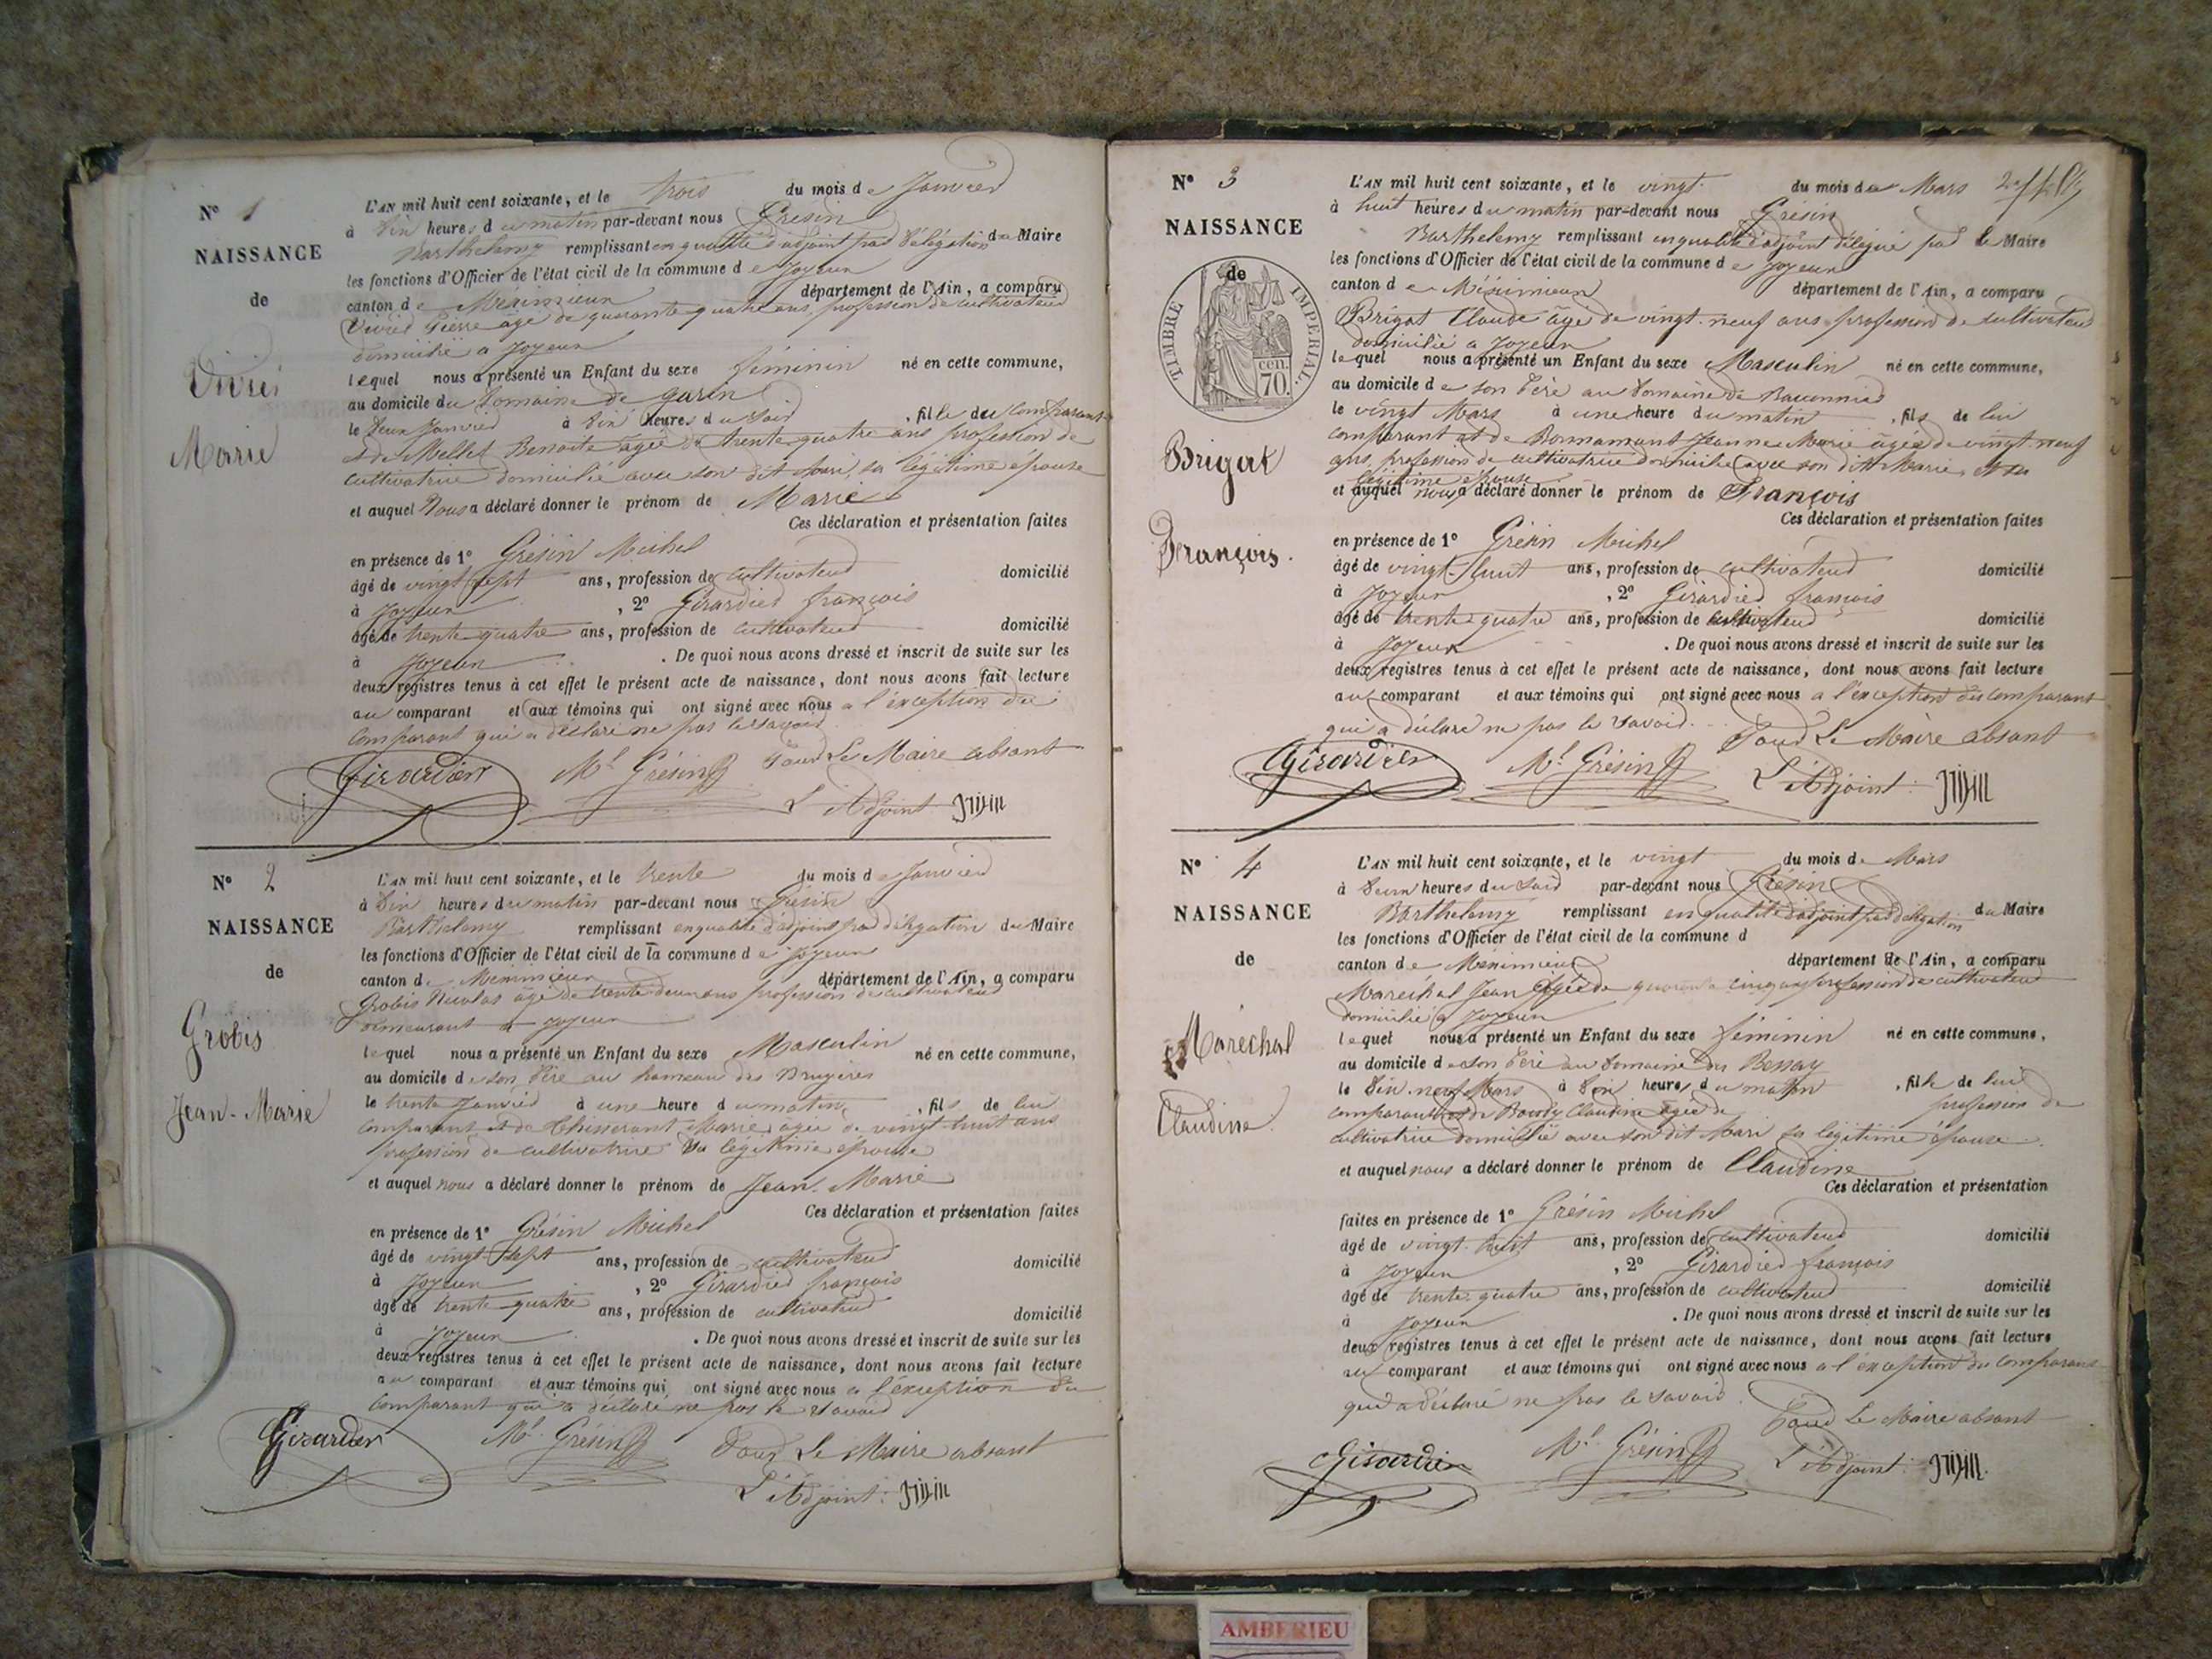 N° 1
NAISSANCE
de
Vivier
Marie
L'AN mil huit cent soixante, et le trois du mois de Janvier
à dix heures du matin par-devant nous Grésin
Barthelemy remplissant en qualité d'adjoint par délégation du Maire
les fonctions d'Officier de l'état civil de la commune de Joyeux
canton de Méximieux département de l'Ain, a comparu
Vivier Pierre âgé de quarante quatre ans, profession de cultivateur
domicilié a Joyeux
lequel nous a présenté un Enfant du sexe féminin né en cette commune,
au domicile du Domaine de garin
le deux Janvier à dix heures du soir, fille du comparant
et de Mellet Benoite agée de trente quatre ans profession de
cultivatrice domicilié avec son dit Mari, sa légitime épouse
et auquel Nous a déclaré donner le prénom de Marie
Ces déclaration et présentation faites
en présence de 1° Grésin Michel
âgé de vingt sept ans, profession de cultivateur domicilié
à Joyeux, 2° Girardier françois
âgé de trente quatre ans, profession de cultivateur domicilié
à Joyeux. De quoi nous avons dressé et inscrit de suite sur les
deux registres tenus à cet effet le présent acte de naissance, dont nous avons fait lecture
au comparant et aux témoins qui ont signé avec nous a l'exception du
comparant qui a déclaré ne pas le savoir.
Girardier Ml Grésin Pour Le Maire absant
L'Adjoint: grésin
N° 2
NAISSANCE
de
Grobis
Jean-Marie
L'AN mil huit cent soixante, et le trente du mois de Janvier
à dix heures du matin par-devant nous Grésin
Barthelemy remplissant en qualité d'adjoint par délégation du Maire
les fonctions d'Officier de l'état civil de la commune de Joyeux
canton de Meximieux département de l'Ain, a comparu
Grobis Nicolas âgé de trente deux ans profession de cultivateur
demeurant a Joyeux
lequel nous a présenté un Enfant du sexe Masculin né en cette commune,
au domicile de son Père au hameau des Bruyères
le trente Janvier à une heure du matin, fils de lui
comparant et de Chisserant Marie, agée de vingt huit ans
profession de cultivatrice sa légitime épouse
et auquel nous a déclaré donner le prénom de Jean-Marie
Ces déclaration et présentation faites
en présence de 1° Grésin Michel
âgé de vingt-sept ans, profession de cultivateur domicilié
à Joyeux, 2° Girardier françois
âgé de trente quatre ans, profession de cultivateur domicilié
à Joyeux. De quoi nous avons dressé et inscrit de suite sur les
deux registres tenus à cet effet le présent acte de naissance, dont nous avons fait lecture
au comparant et aux témoins qui ont signé avec nous a l'exception du
comparant qui a déclaré ne pas le savoir
Girardier Ml Grésin Pour Le Maire absant
L'Adjoint: grésin
N° 3
NAISSANCE
de
TIMBRE IMPERIAL.
70 cen.
Brigat
François.
L'AN mil huit cent soixante, et le vingt du mois de Mars
à huit heures du matin par-devant nous Grésin
Barthelemy remplissant en qualité d'adjoint délégué par le Maire
les fonctions d'Officier de l'état civil de la commune de Joyeux
canton de Méximieux département de l'Ain, a comparu
Brigat Claude âgé de vingt-neuf ans profession de cultivateur
domicilié a Joyeux
lequel nous a présenté un Enfant du sexe Masculin né en cette commune,
au domicile de son Père au domaine de
le vingt Mars à une heure du matin, fils de lui
comparant et de Bonnamant Jeanne Marie âgée de vingt neuf
ans, profession de cultivatrice domicilié avec son dit Marie, et sa
légitime épouse
et auquel nous a déclaré donner le prénom de François
Ces déclaration et présentation faites
en présence de 1° Grésin Michel
âgé de vingt-huit ans, profession de cultivateur domicilié
à Joyeux, 2° Girardier françois
âgé de trente quatre ans, profession de cultivateur domicilié
à Joyeux. De quoi nous avons dressé et inscrit de suite sur les
deux registres tenus à cet effet le présent acte de naissance, dont nous avons fait lecture
au comparant et aux témoins qui ont signé avec nous a l'exception du comparant
qui a déclaré ne pas le savoir. Pour Le Maire absant
Girardier Ml Grésin L'Adjoint: grésin
N° 4
NAISSANCE
de
Maréchal
Claudine.
L'AN mil huit cent soixante, et le vingt du mois de Mars
à deux heures du soir par-devant nous Grésin
Barthelemy remplissant en qualité d'adjoint par délégation du Maire
les fonctions d'Officier de l'état civil de la commune d
canton de Méximieux département de l'Ain, a comparu
Maréchal Jean Agée de quarante cinq ans profession de cultivateur
domicilié a Joyeux
lequel nous a présenté un Enfant du sexe féminin né en cette commune,
au domicile de son Père au domaine du Bessay
le dix-neuf Mars à dix heures du matin, fille de lui
comparant et de Claudine agée de profession de
cultivatrice domicilié avec son dit Mari sa légitime épouse
et auquel nous a déclaré donner le prénom de Claudine
Ces déclaration et présentation
faites en présence de 1° Grésin Michel
âgé de vingt-huit ans, profession de cultivateur domicilié
à Joyeux, 2° Girardier françois
âgé de trente quatre ans, profession de cultivateur domicilié
à Joyeux. De quoi nous avons dressé et inscrit de suite sur les
deux registres tenus à cet effet le présent acte de naissance, dont nous avons fait lecture
au comparant et aux témoins qui ont signé avec nous a l'exception du comparant
qui a déclaré ne pas le savoir. Pour Le Maire absant
Girardier Ml Grésin L'Adjoint: grésin
AMBERIEU